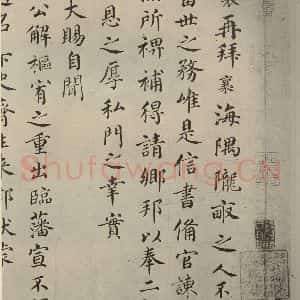 襄再拜襄海隅隴畝之人不
當世之務唯是信書備官諫
無所裨補得請鄉邦以奉二
恩之厚私門之幸實
大賜自聞
公解樞宥之重出臨藩宣不
Shufawang.CN